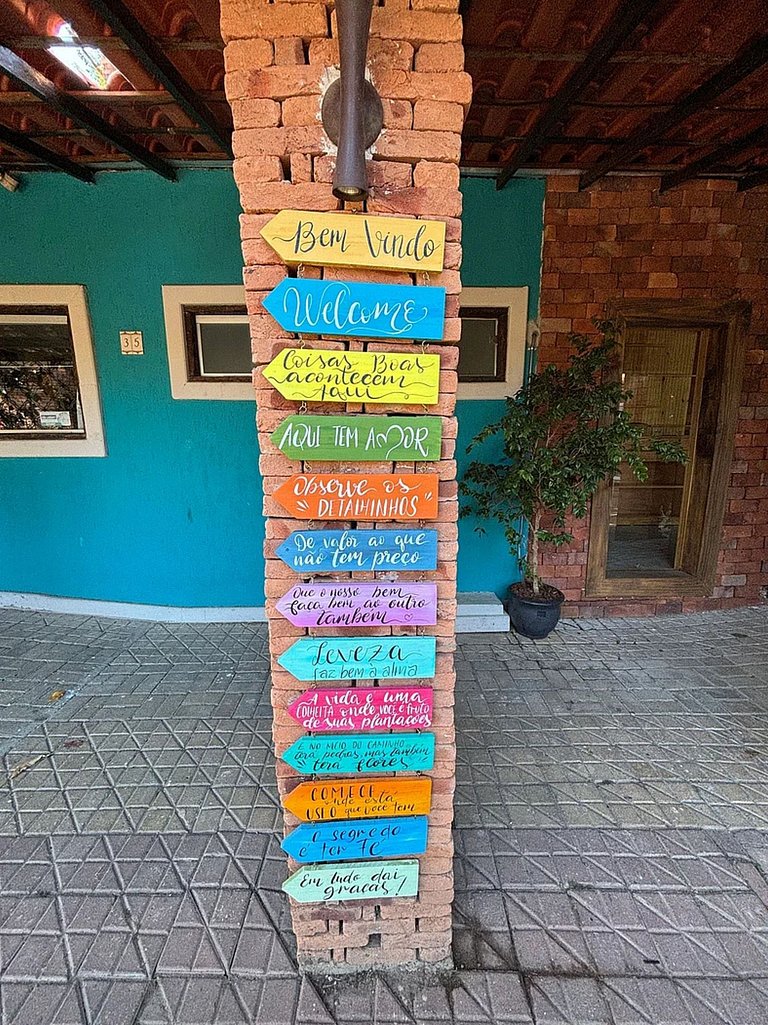 35
Bem Vindo
Welcome
Coisas Boas
acontecem
aqui
AQUI TEM AMOR
Observe os
"DETALHINHOS"
De valor ao que
não tem preço
Que o nosso bem
faça bem ao outro
também
Leveza
faz bem à alma
A vida é uma
COLHEITA onde você é fruto
de suas plantações
E NO MEIO DO CAMINHO
terá pedras, mas também
terá flores
COMECE
onde está
USE O que você tem
o segredo
é ter fé
Em tudo dai
graças!